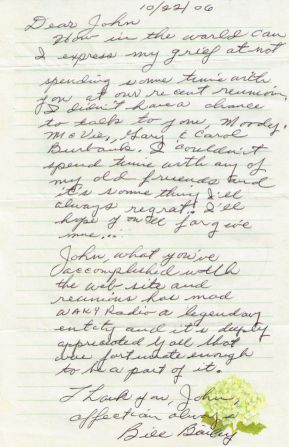 10/22/06
Dear John
How in the world can
I express my grief at not
spending some time with
you at our recent reunion.
I didn't have a chance
to talk to you, Moody,
McVie, Gary & Carol
Burbank. I couldn't
spend time with any of
my old friends and
it's something I'll
always regret. I'll
hope you'll forgive
me...
John, what you've
accomplished with
the web site and
reunions has mad
WAKY Radio a legendary
entity and it's deeply
appreciated by all that
were fortunate enough
to be a part of it.
Thank you, John,
affection always
Bill Bailey